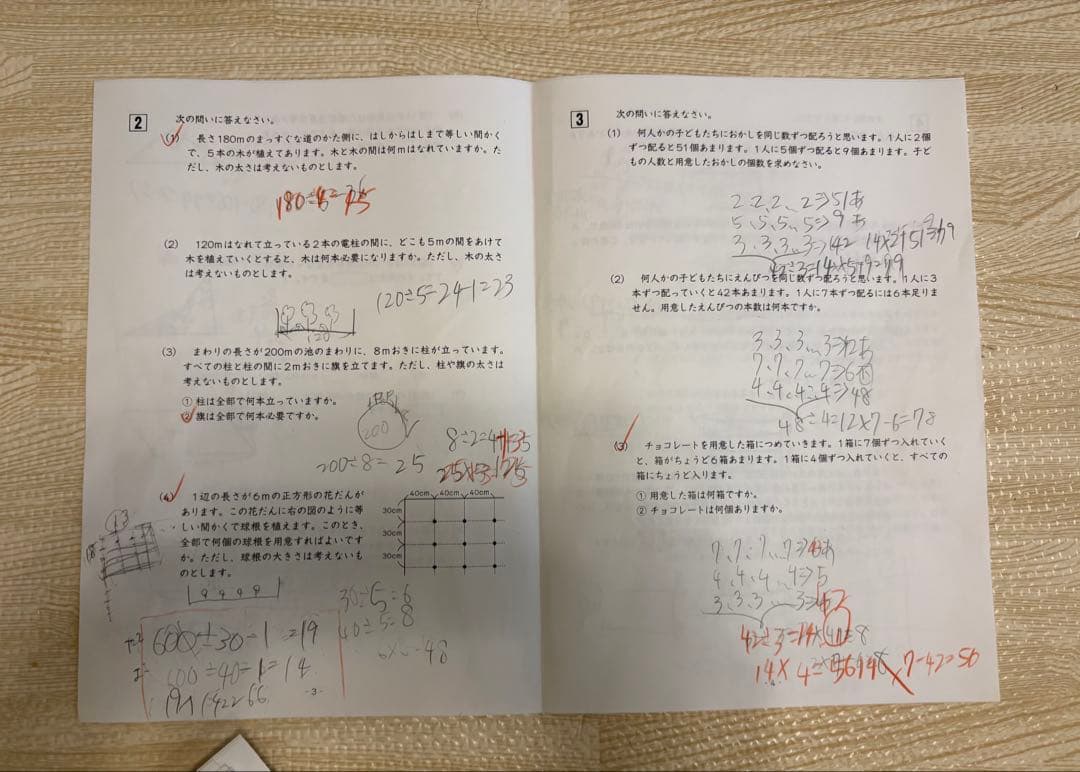 2 次の問いに答えなさい。
(1) 長さ180mのまっすぐな道のかた側に、はしからはしまで等しい間かく
で、5本の木が植えてあります。木と木の間は何mはなれていますか。た
だし、木の太さは考えないものとします。
(2) 120mはなれて立っている2本の電柱の間に、どこも5mの間をあけて
木を植えていくとすると、木は何本必要になりますか。ただし、木の太
さは考えないものとします。
120÷5=24-1=23
120
(3) まわりの長さが200mの池のまわりに、8mおきに柱が立っています。
すべての柱と柱の間に2mおきに旗を立てます。ただし、柱や旗の太さは
考えないものとします。
① 柱は全部で何本立っていますか。
② 旗は全部で何本必要ですか。
200
200÷8=25
(4) 1辺の長さが6mの正方形の花だんが
あります。この花だんに右の図のように等
しい間かくで球根を植えます。このとき、
全部で何個の球根を用意すればよいです
か。ただし、球根の大きさは考えないも
のとします。
40cm 40cm 40cm
30cm
30cm
30cm
30÷5=6
40÷5=8
600÷30-1=19
600÷40-1=14
-3-
3 次の問いに答えなさい。
(1) 何人かの子どもたちにおかしを同じ数ずつ配ろうと思います。1人に2個
ずつ配ると51個あまります。1人に5個ずつ配ると9個あまります。子ど
もの人数と用意したおかしの個数を求めなさい。
2、2、2、、2⇒51あ
5、5、5、5⇒9あ
3、3、3、3⇒42
42÷3=14×5+9=79
(2) 何人かの子どもたちにえんぴつを同じ数ずつ配ろうと思います。1人に3
本ずつ配っていくと42本あまります。1人に7本ずつ配るには6本足りま
せん。用意したえんぴつの本数は何本ですか。
3、3、3、、3⇒42あ
7、7、7、、7⇒6不
4、4、4、4⇒48
48÷4=12×7-6=78
(3) チョコレートを用意した箱につめていきます。1箱に7個ずつ入れていく
と、箱がちょうど6箱あまります。1箱に4個ずつ入れていくと、すべての
箱にちょうど入ります。
① 用意した箱は何箱ですか。
② チョコレートは何個ありますか。
42÷3=14